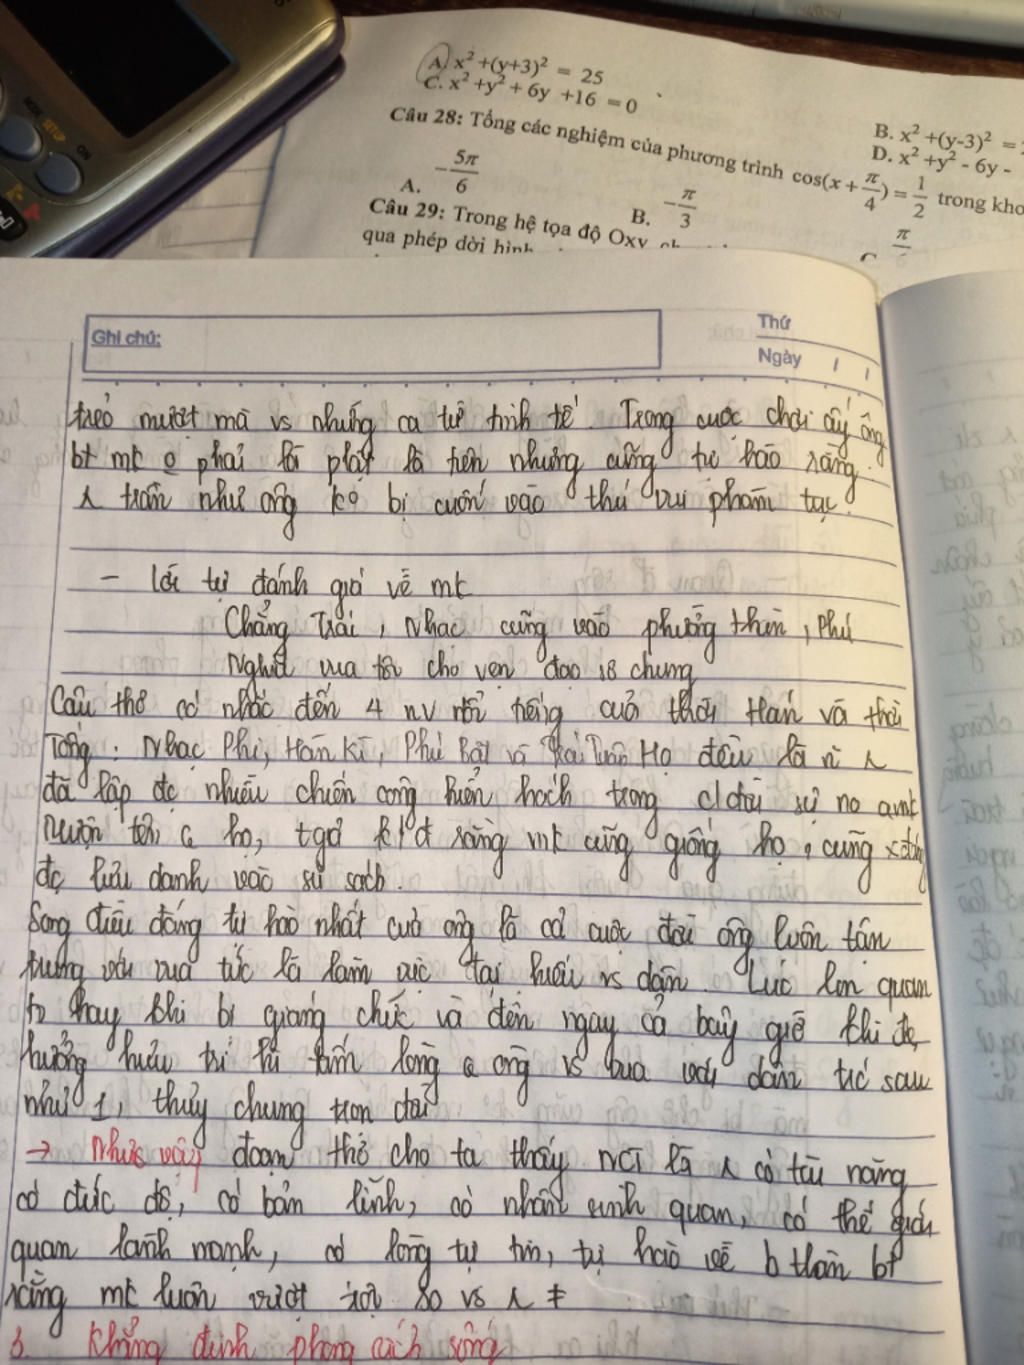 A. x² + (y+3)² = 25
C. x² + y² + 6y + 16 = 0
B. x² + (y-3)² =
D. x² + y² - 6y -
Câu 28: Tổng các nghiệm của phương trình cos(x + π/4) = 1/2 trong kho
A. -5π/6
B. -π/3
π
Câu 29: Trong hệ tọa độ Oxy
qua phép dời hình
MODE SETUP ON
Ghi chú:
Thứ
Ngày / /
trẻo mượt mà vs những ca từ tinh tế. Trong cuộc chơi ấy ông
bt mk o phải là phật là tiên nhưng cũng tự hào rằng
trần như ông ko bị cuốn vào thú vui phàm tục.
- Lời tự đánh giá về mk
Chẳng Trái, Nhạc cũng vào phường Hàn, Phú
Nghĩa vua tôi cho vẹn đạo sơ chung
Câu thơ có nhắc đến 4 nv nổi tiếng của thời Hán và thời
Tống: Nhạc Phi, Hàn Kì, Phú Bật và Trái Tuân Họ đều là
đã lập đc nhiều chiến công hiển hách trong
Mượn tên họ, tgđ rằng mk cũng giống họ, cũng
đc lưu danh vào sử sách.
Song điều đáng tự hào nhất của ông là cả cuộc đời ông luôn tận
trung với vua tức là làm việc vs dân. Lúc làm quan
to hay khi bị giáng chức và đến ngay cả bây giờ khi đc
hưởng hưu trí thì tấm lòng ông vs vua với dân trc sau
như 1, thủy chung trọn đời
→ Như vậy đoạn thơ cho ta thấy NCT là có tài năng
có đức độ, có bản lĩnh, có nhân sinh quan, có thế giới
quan lành mạnh, có lòng tự tin, tự hào về b thân bt
rằng mk luôn vượt trội so vs ≠
3. Khẳng định phong cách sống